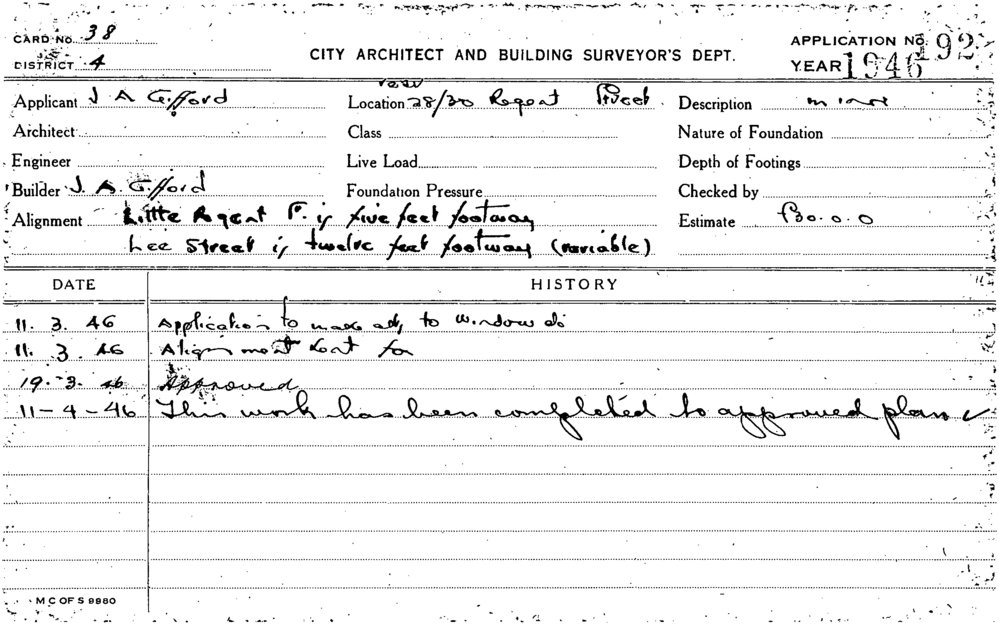 CARD No. 38
DISTRICT 4
CITY ARCHITECT AND BUILDING SURVEYOR'S DEPT.
APPLICATION No. 192
YEAR 1946
Applicant J A Gifford
rear
Location 28/30 Regent Street
Description minor
Architect
Class
Nature of Foundation
Engineer
Live Load
Depth of Footings
Builder J. A. Gifford
Foundation Pressure
Checked by
Alignment Little Regent St. is five feet footway
Estimate £30.0.0
Lee Street is twelve feet footway (variable)
DATE HISTORY
11. 3. 46 Application to make to window
11. 3. 46 Alignment for
19. 3. 46 Approved
11-4-46 This work has been completed to approved plan ✓
M C OF S 9980